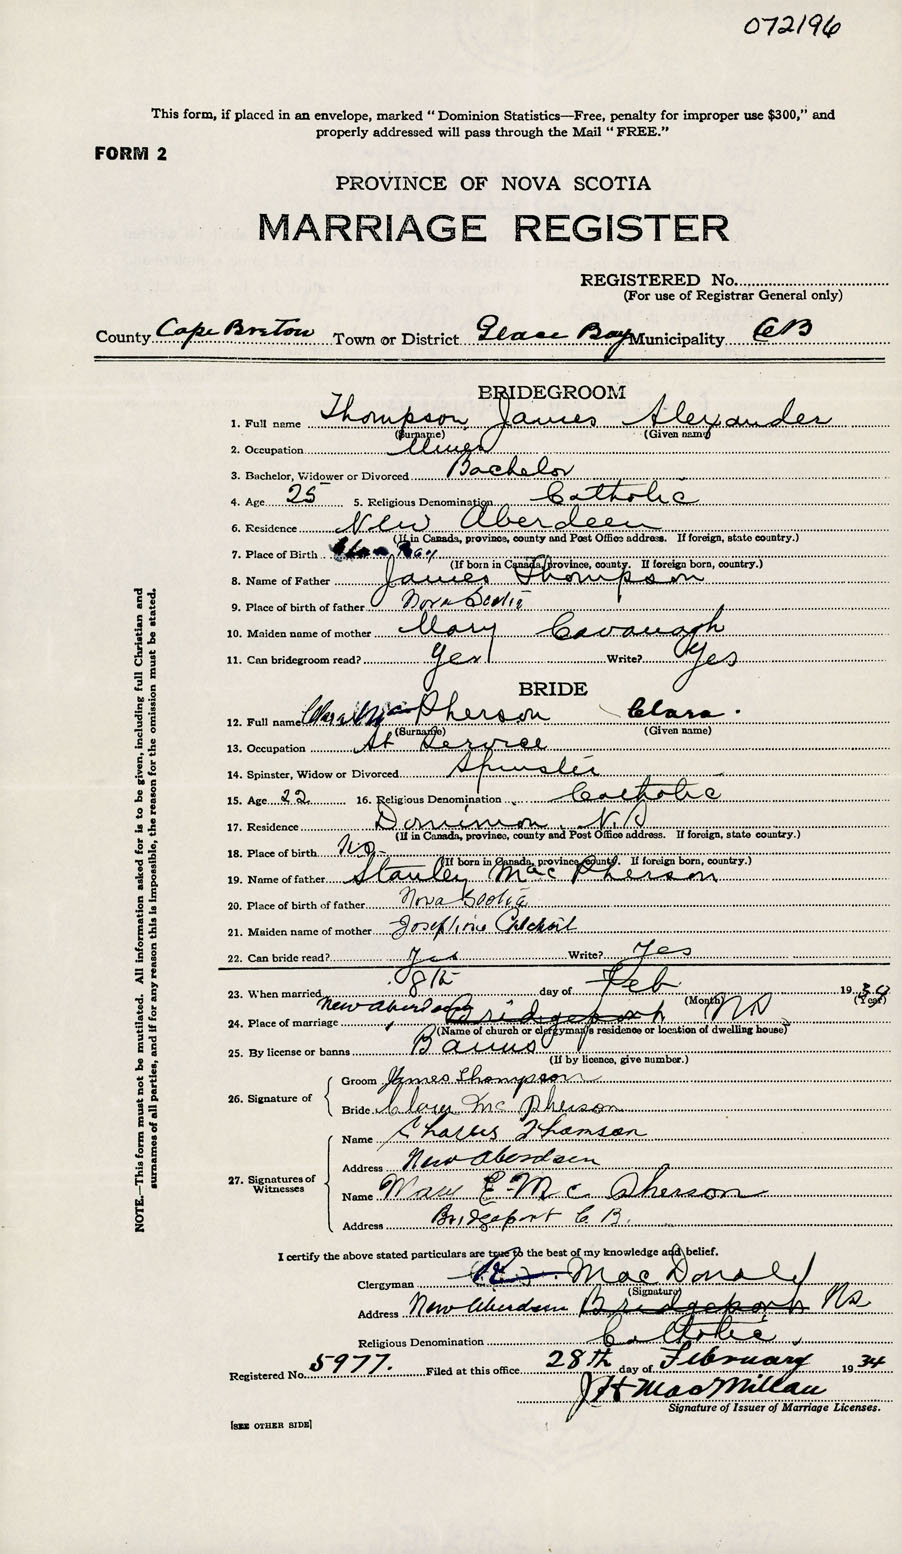 072196
This form, if placed in an envelope, marked "Dominion Statistics—Free, penalty for improper use $300," and
properly addressed will pass through the Mail "FREE."
FORM 2
PROVINCE OF NOVA SCOTIA
MARRIAGE REGISTER
REGISTERED No.
(For use of Registrar General only)
County Cape Breton Town or District Glace Bay Municipality CB
BRIDEGROOM
1. Full name Thompson James Alexander
(Surname) (Given name)
2. Occupation Miner
3. Bachelor, Widower or Divorced Bachelor
4. Age 25 5. Religious Denomination Catholic
6. Residence New Aberdeen
(If in Canada, province, county and Post Office address. If foreign, state country.)
7. Place of Birth Bay
(If born in Canada, province, county. If foreign born, country.)
8. Name of Father James Thompson
9. Place of birth of father Nova Scotia
10. Maiden name of mother Mary Cavanagh
11. Can bridegroom read? Yes Write? Yes
BRIDE
12. Full name MacPherson Clara.
(Surname) (Given name)
13. Occupation At Service
14. Spinster, Widow or Divorced Spinster
15. Age 22 16. Religious Denomination Catholic
17. Residence Dominion N.S
(If in Canada, province, county and Post Office address. If foreign, state country.)
18. Place of birth
(If born in Canada, province county. If foreign born, country.)
19. Name of father Stanley MacPherson
20. Place of birth of father Nova Scotia
21. Maiden name of mother Josephine
22. Can bride read? Yes Write? Yes
23. When married 8th day of Feb 19
(Month) (Year)
24. Place of marriage New Aberdeen Bridgeport NS
(Name of church or clergyman's residence or location of dwelling house)
25. By license or banns Banns
(If by licence, give number.)
26. Signature of
Groom James Thompson
Bride Clara McPherson
27. Signatures of Witnesses
Name Charles Thomson
Address New Aberdeen
Name E. McPherson
Address Bridgeport C.B.
I certify the above stated particulars are true to the best of my knowledge and belief.
Clergyman MacDonald
(Signature)
Address New Aberdeen Bridgeport NS
Religious Denomination Catholic
Registered No. 5977. Filed at this office 28th day of February 1934
JH MacMillan
Signature of Issuer of Marriage Licenses.
[SEE OTHER SIDE]
NOTE.—This form must not be mutilated. All information asked for is to be given, including full Christian and
surnames of all parties, and if for any reason this is impossible, the reason for the omission must be stated.